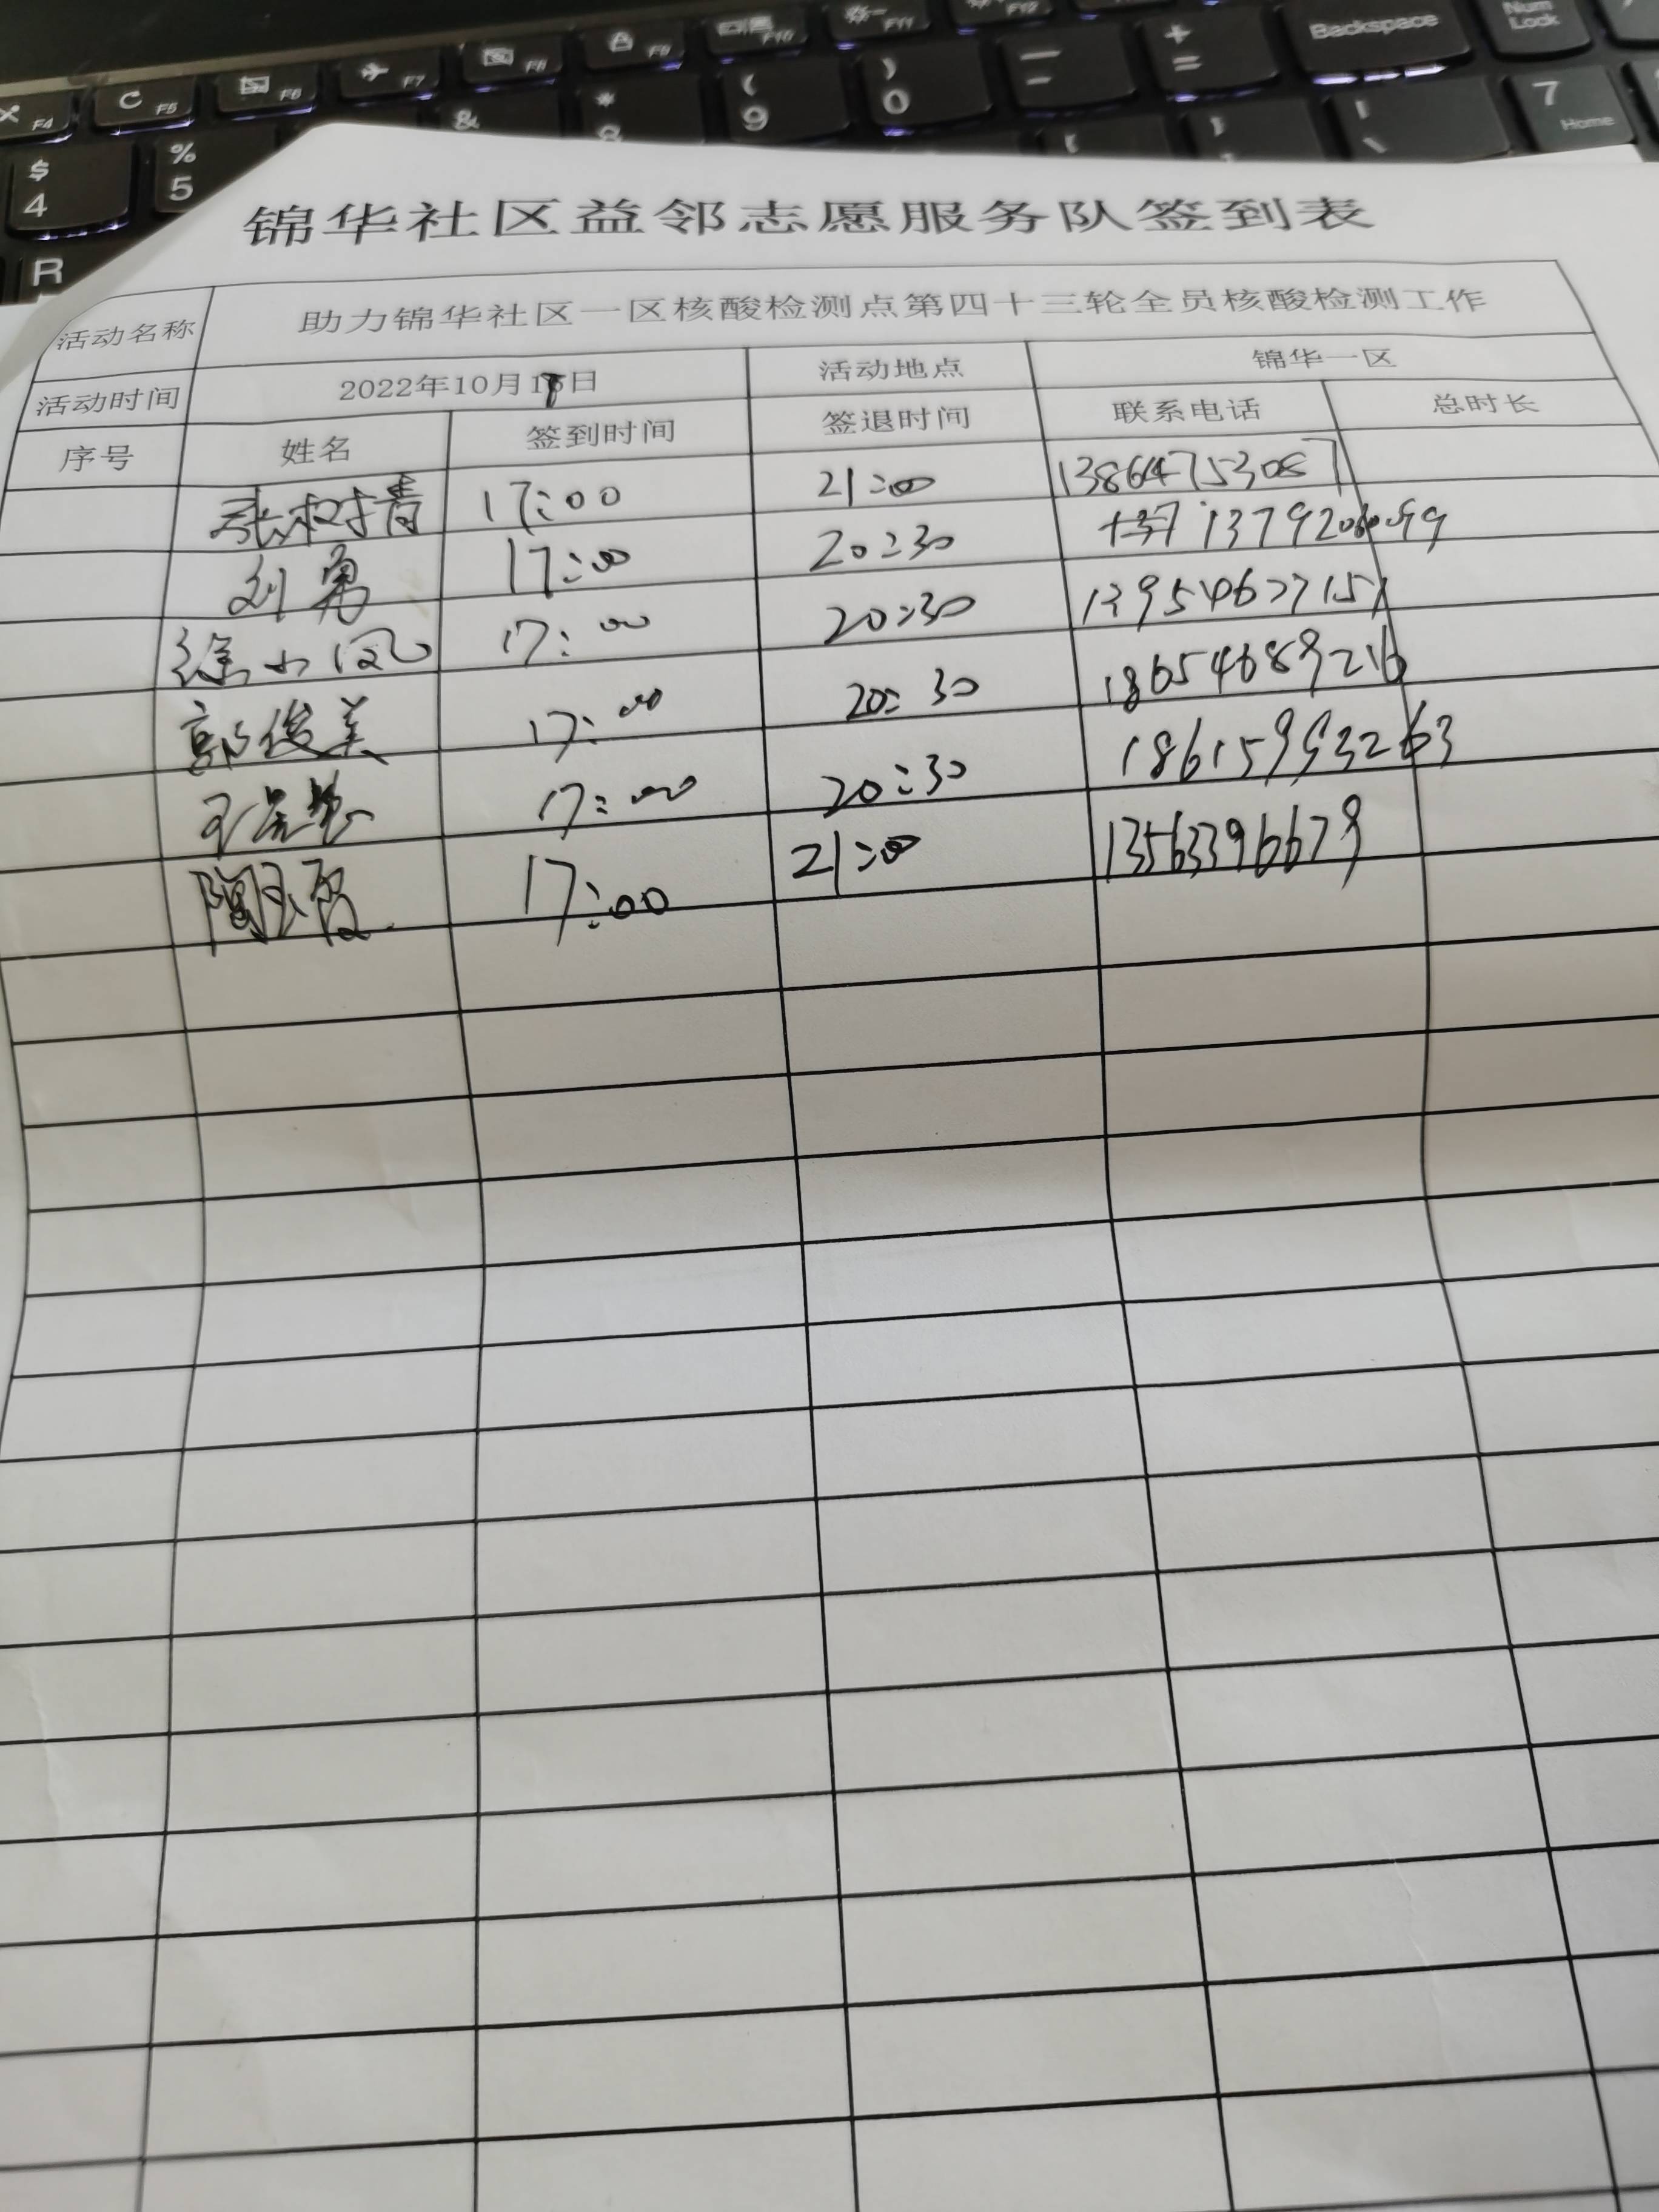 F4 F5 F6 F7 F8 F9 F10 F11 F12 Backspace Num Lock
$ 4 % 5 & * 8 ( 9 ) 0 — - + = 7 Home
R
锦华社区益邻志愿服务队签到表
活动名称 助力锦华社区一区核酸检测点第四十三轮全员核酸检测工作
活动时间 2022年10月 日 活动地点 锦华一区
序号 姓名 签到时间 签退时间 联系电话 总时长
张树青 17:00 21:00 13864753087
刘勇 17:00 20:30
徐小凤 17:00 20:30
郭俊美 17:00 20:30 18654689216
17:00 20:30 18615993263
陶玉霞 17:00 21:00 13563396679